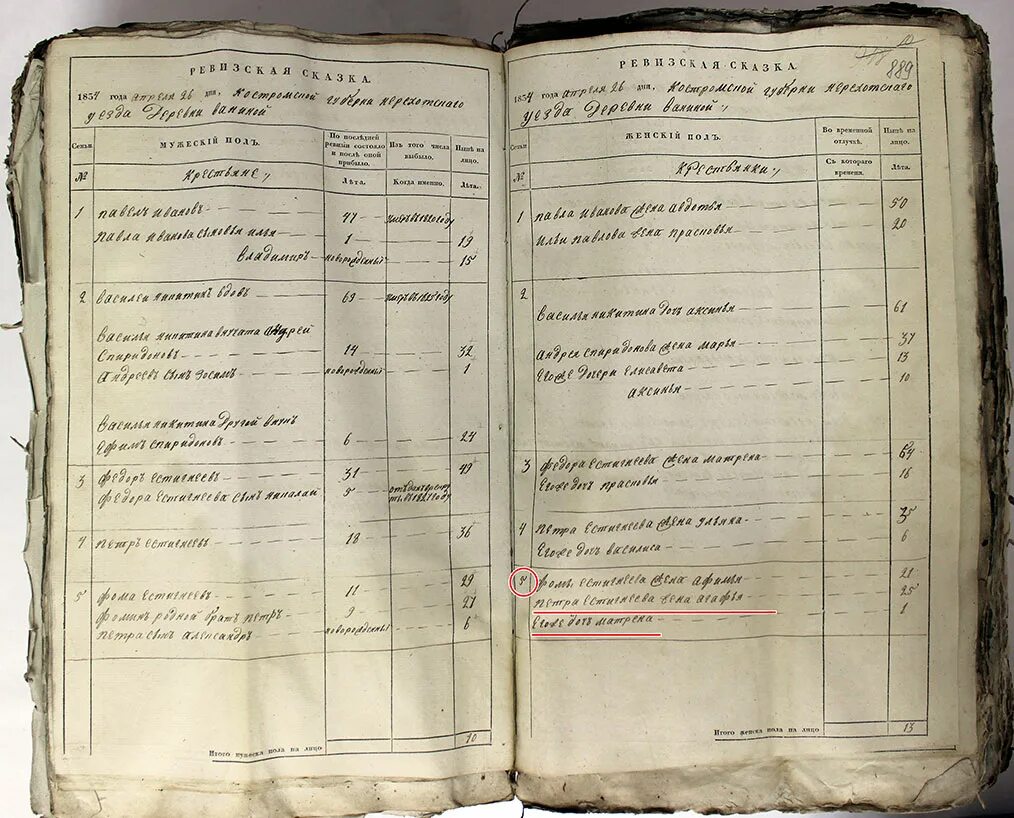 889
РЕВИЗСКАЯ СКАЗКА.
1834 года апреля 26 дня, Костромской губернии нерехотскаго
уезда Деревни ваниной
Семьи
МУЖЕСКІЙ ПОЛЪ.
По послѣдней ревизіи состояло и послѣ оной прибыло.
Изъ того числа выбыло.
Нынѣ на лицо.
№
Крестьяне
Лѣта.
Когда именно.
Лѣта.
1 павелъ ивановъ 47
Павла иванова сыновья илья 1 19
Владимиръ новорожденный 15
2 василеи никитинъ вдовъ 69
Василья никитина внучата андрей
Спиридоновъ 14 32
Андреевъ сынъ зосимъ новорожденный 1
Василья никитина другой внукъ
Ефимъ спиридоновъ 6 24
3 федоръ естигнеевъ 31 49
Федора естигнеева сынъ николай 5
4 петръ естигнеевъ 18 36
5 фома естигнеевъ 11 29
фоминъ родной братъ петръ 9 27
петра сынъ александръ новорожденный 6
Итого мужеска пола на лицо 10
РЕВИЗСКАЯ СКАЗКА.
1834 года апреля 26 дня, Костромской губернии нерехотскаго
уезда Деревни ваниной
Семьи
ЖЕНСКІЙ ПОЛЪ.
Во временной отлучкѣ.
Нынѣ на лицо.
№
Крестьянки
Съ котораго времени.
Лѣта.
1 павла иванова жена авдотья 50
ильи павлова жена прасковья 20
2
Василья никитина дочь аксинья 61
андрея спиридонова жена марья 37
Егоже дочери елисавета 13
аксинья 10
3 федора естигнеева жена матрена
Егоже дочь прасковья 16
4 петра естигнеева жена ульяна 35
Егоже дочь василиса 6
5 фомы естигнеева жена афимья 21
петра естигнеева жена агафья 25
Егоже дочь матрена 1
Итого женска пола на лицо 13